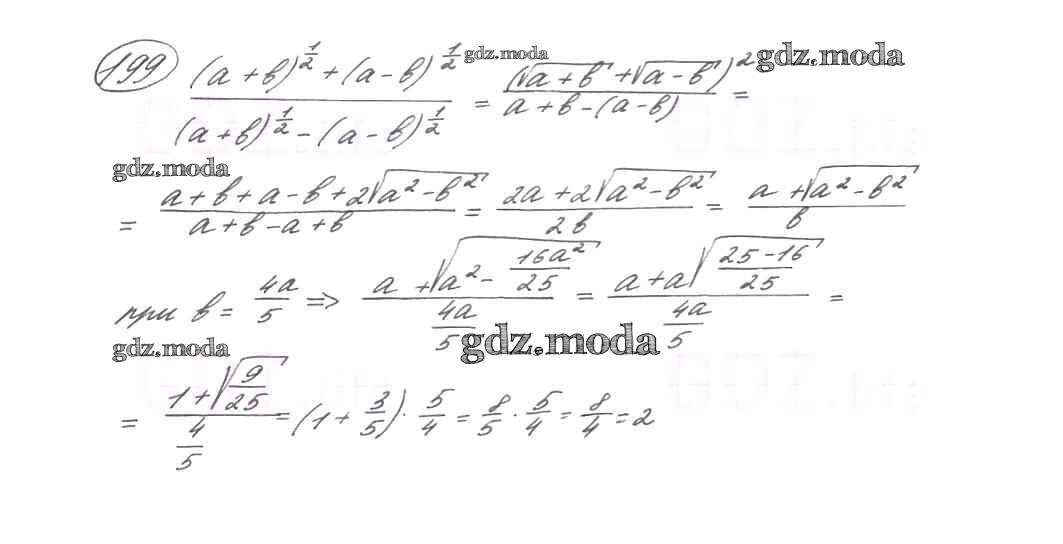 199 ((a+b)^(1/2) + (a-b)^(1/2)) / ((a+b)^(1/2) - (a-b)^(1/2)) = (√(a+b) + √(a-b))^2 / (a+b-(a-b)) =
gdz.moda gdz.moda
gdz.moda
= (a+b+a-b+2√(a^2-b^2)) / (a+b-a+b) = (2a+2√(a^2-b^2)) / (2b) = (a+√(a^2-b^2)) / b
при b = 4a/5 => (a+√(a^2-16a^2/25)) / (4a/5) = (a+a√((25-16)/25)) / (4a/5) =
gdz.moda gdz.moda
= (1+√(9/25)) / (4/5) = (1+3/5)·5/4 = 8/5·5/4 = 8/4 = 2